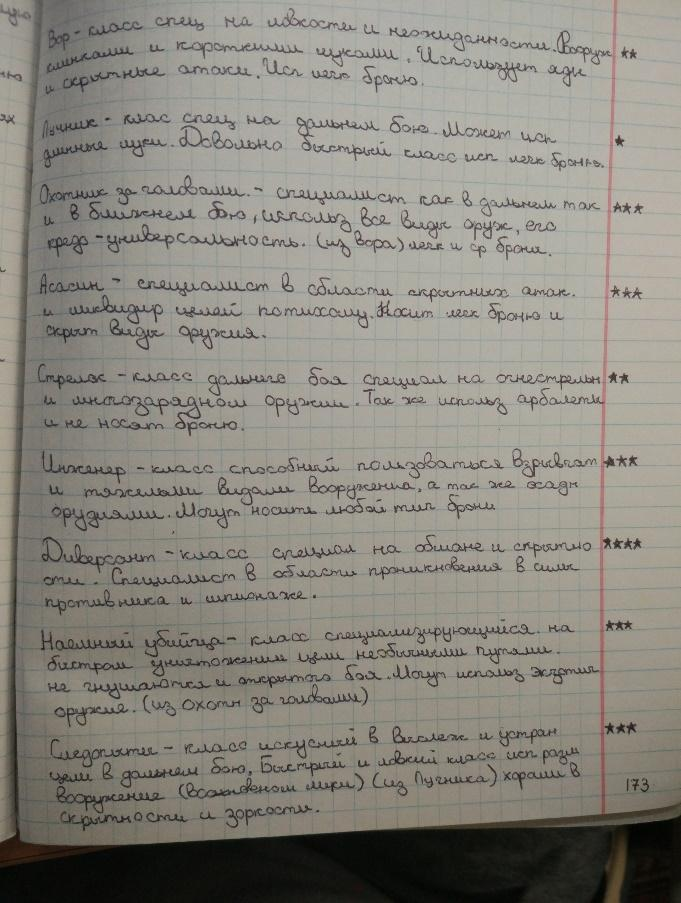 Вор - класс спец на ловкости и неожиданности. Вооруж ★★
клинками и короткими луками. Использует яды
и скрытные атаки. Исп легк броню.
Лучник - клас спец на дальнем бою. Может исп ★
длинные луки. Довольно быстрый класс исп легк броню.
Охотник за головами. - специалист как в дальнем так ★★★
и в ближнем бою, использ все виды оруж, его
кредо - универсальность. (из вора) легк и ср броня.
Асасин - специалист в области скрытных атак. ★★★
и ликвидир целей потихому. Носит легк броню и
скрыт виды оружия.
Стрелок - класс дальнего боя специал на огнестрельн ★★
и многозарядном оружии. Так же использ арбалеты
и не носят броню.
Инженер - класс способный пользоваться взрывчат ★★★
и тяжелыми видами вооружения, а так же осадн
орудиями. Могут носить любой тип брони
Диверсант - класс специал на обмане и скрытно ★★★★
сти. Специалист в области проникновения в силы
противника и шпионаже.
Наемный убийца - класс специализирующийся на ★★★
быстром уничтожении цели необычными путями.
не гнушаются и открытого боя. Могут использ экзотич
оружие. (из охотн за головами)
Следопыты - класс искусный в выслеж и устран ★★★
цели в дальнем бою. Быстрый и ловкий класс исп разн
вооружение (в основном луки) (из Лучника) хорош в
скрытности и зоркости.
173